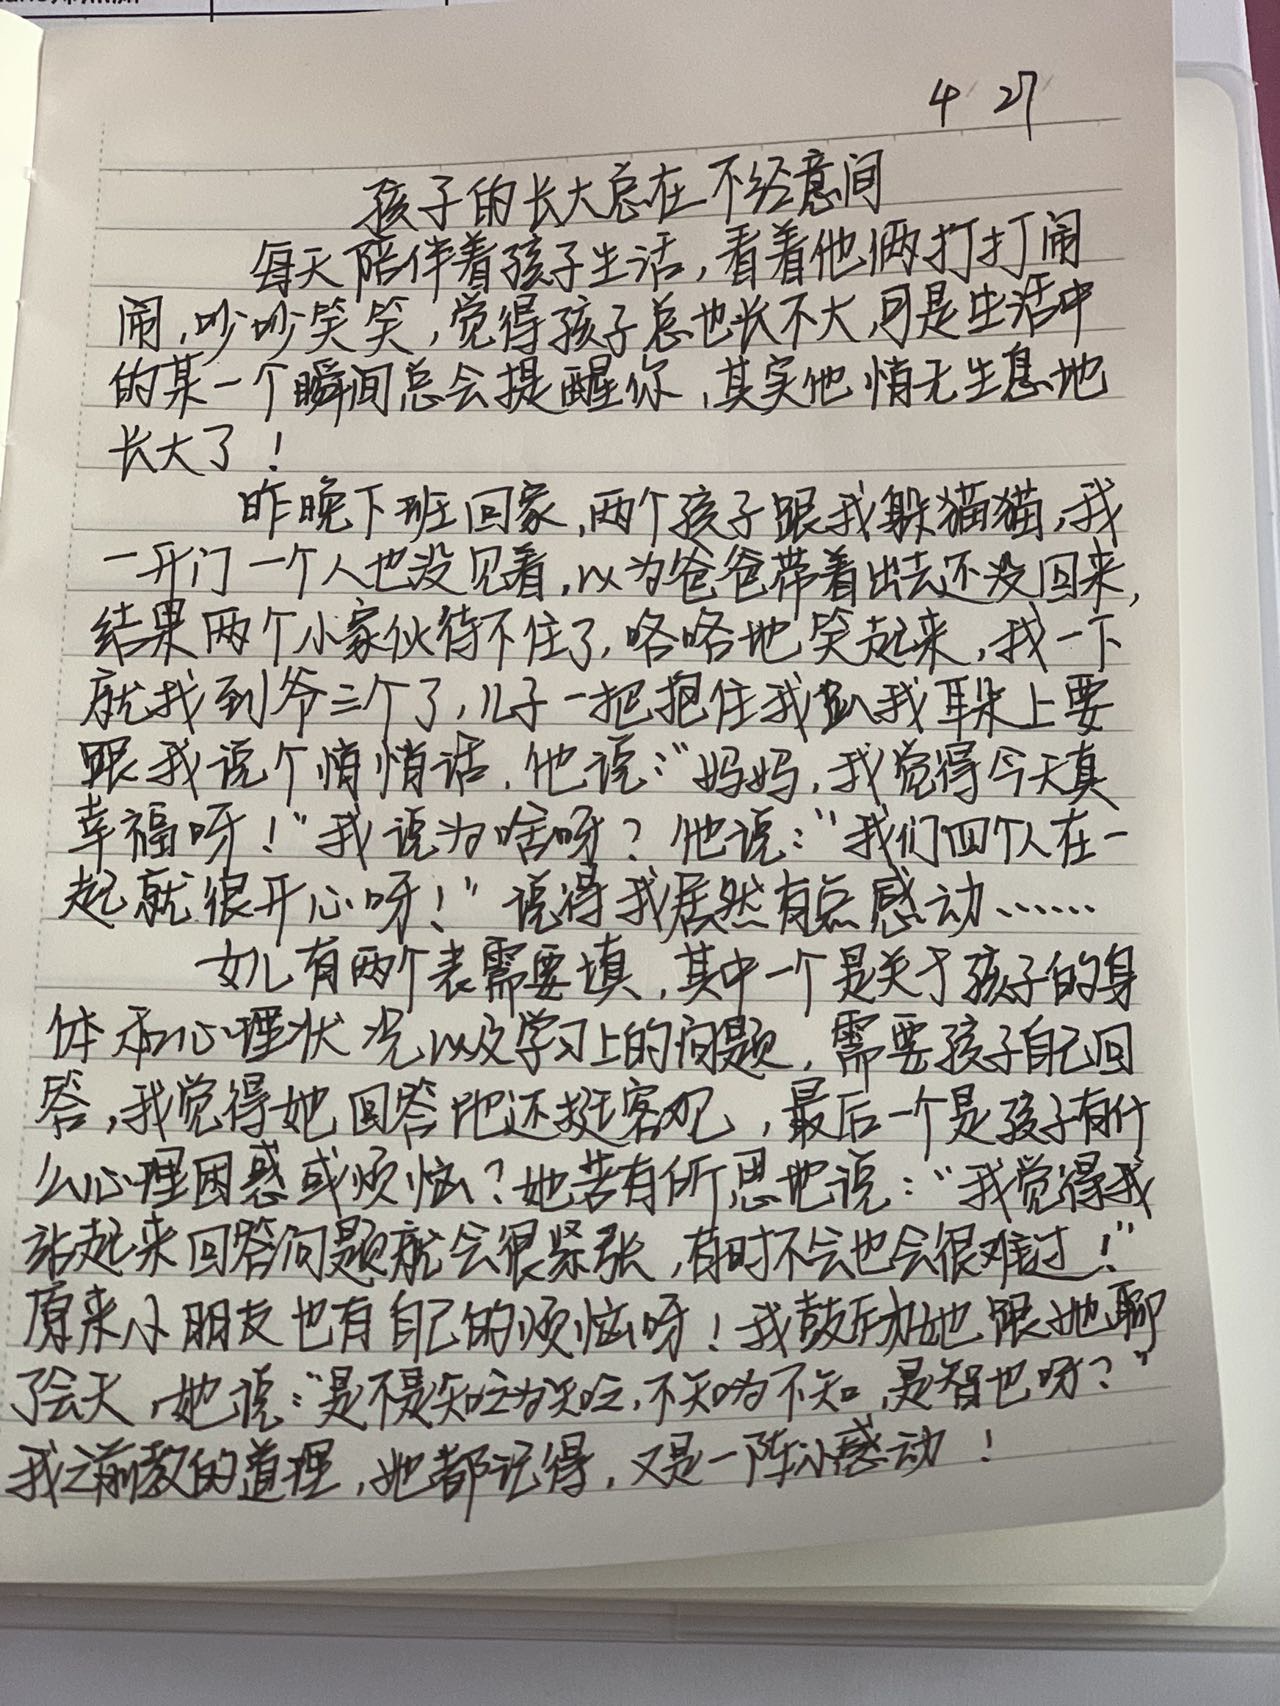 4 27
孩子的长大总在不经意间
每天陪伴着孩子生活,看着他俩打打闹
闹,吵吵笑笑,觉得孩子总也长不大,可是生活中
的某一个瞬间总会提醒你,其实他悄无生息地
长大了!
昨晚下班回家,两个孩子跟我躲猫猫,我
一开门一个人也没见着,以为爸爸带着出去还没回来,
结果两个小家伙待不住了,咯咯地笑起来,我一下
就找到爷三个了,儿子一把抱住我趴我耳朵上要
跟我说个悄悄话,他说:“妈妈,我觉得今天真
幸福呀!”我说为啥呀?他说:“我们四个人在一
起就很开心呀!”说得我居然有点感动……
女儿有两个表需要填,其中一个是关于孩子的身
体和心理状况以及学习上的问题,需要孩子自己回
答,我觉得她回答地还挺客观,最后一个是孩子有什
么心理困惑或烦恼?她若有所思地说:“我觉得我
站起来回答问题就会很紧张,有时不会也会很难过!”
原来小朋友也有自己的烦恼呀!我鼓励她跟她聊
了会天,她说:“是不是知之为知之,不知为不知,是智也呀?”
我之前教的道理,她都记得,又是一阵小感动!